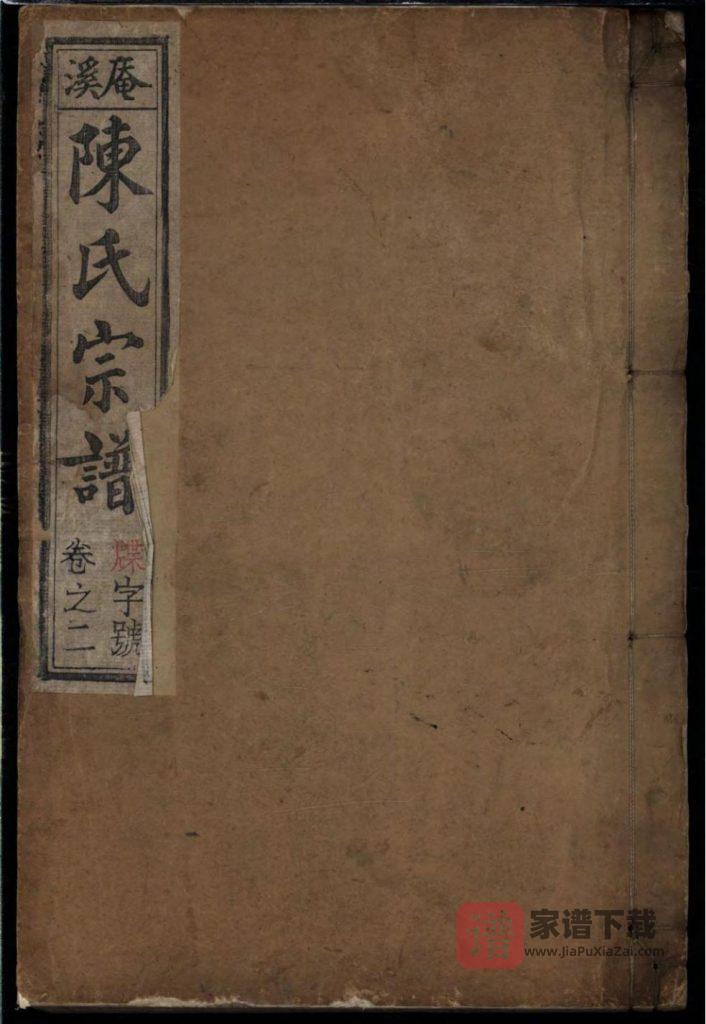 庵溪
陳氏宗譜
牒字號
卷之二
譜
家谱下载
www.JiaPuXiaZai.com